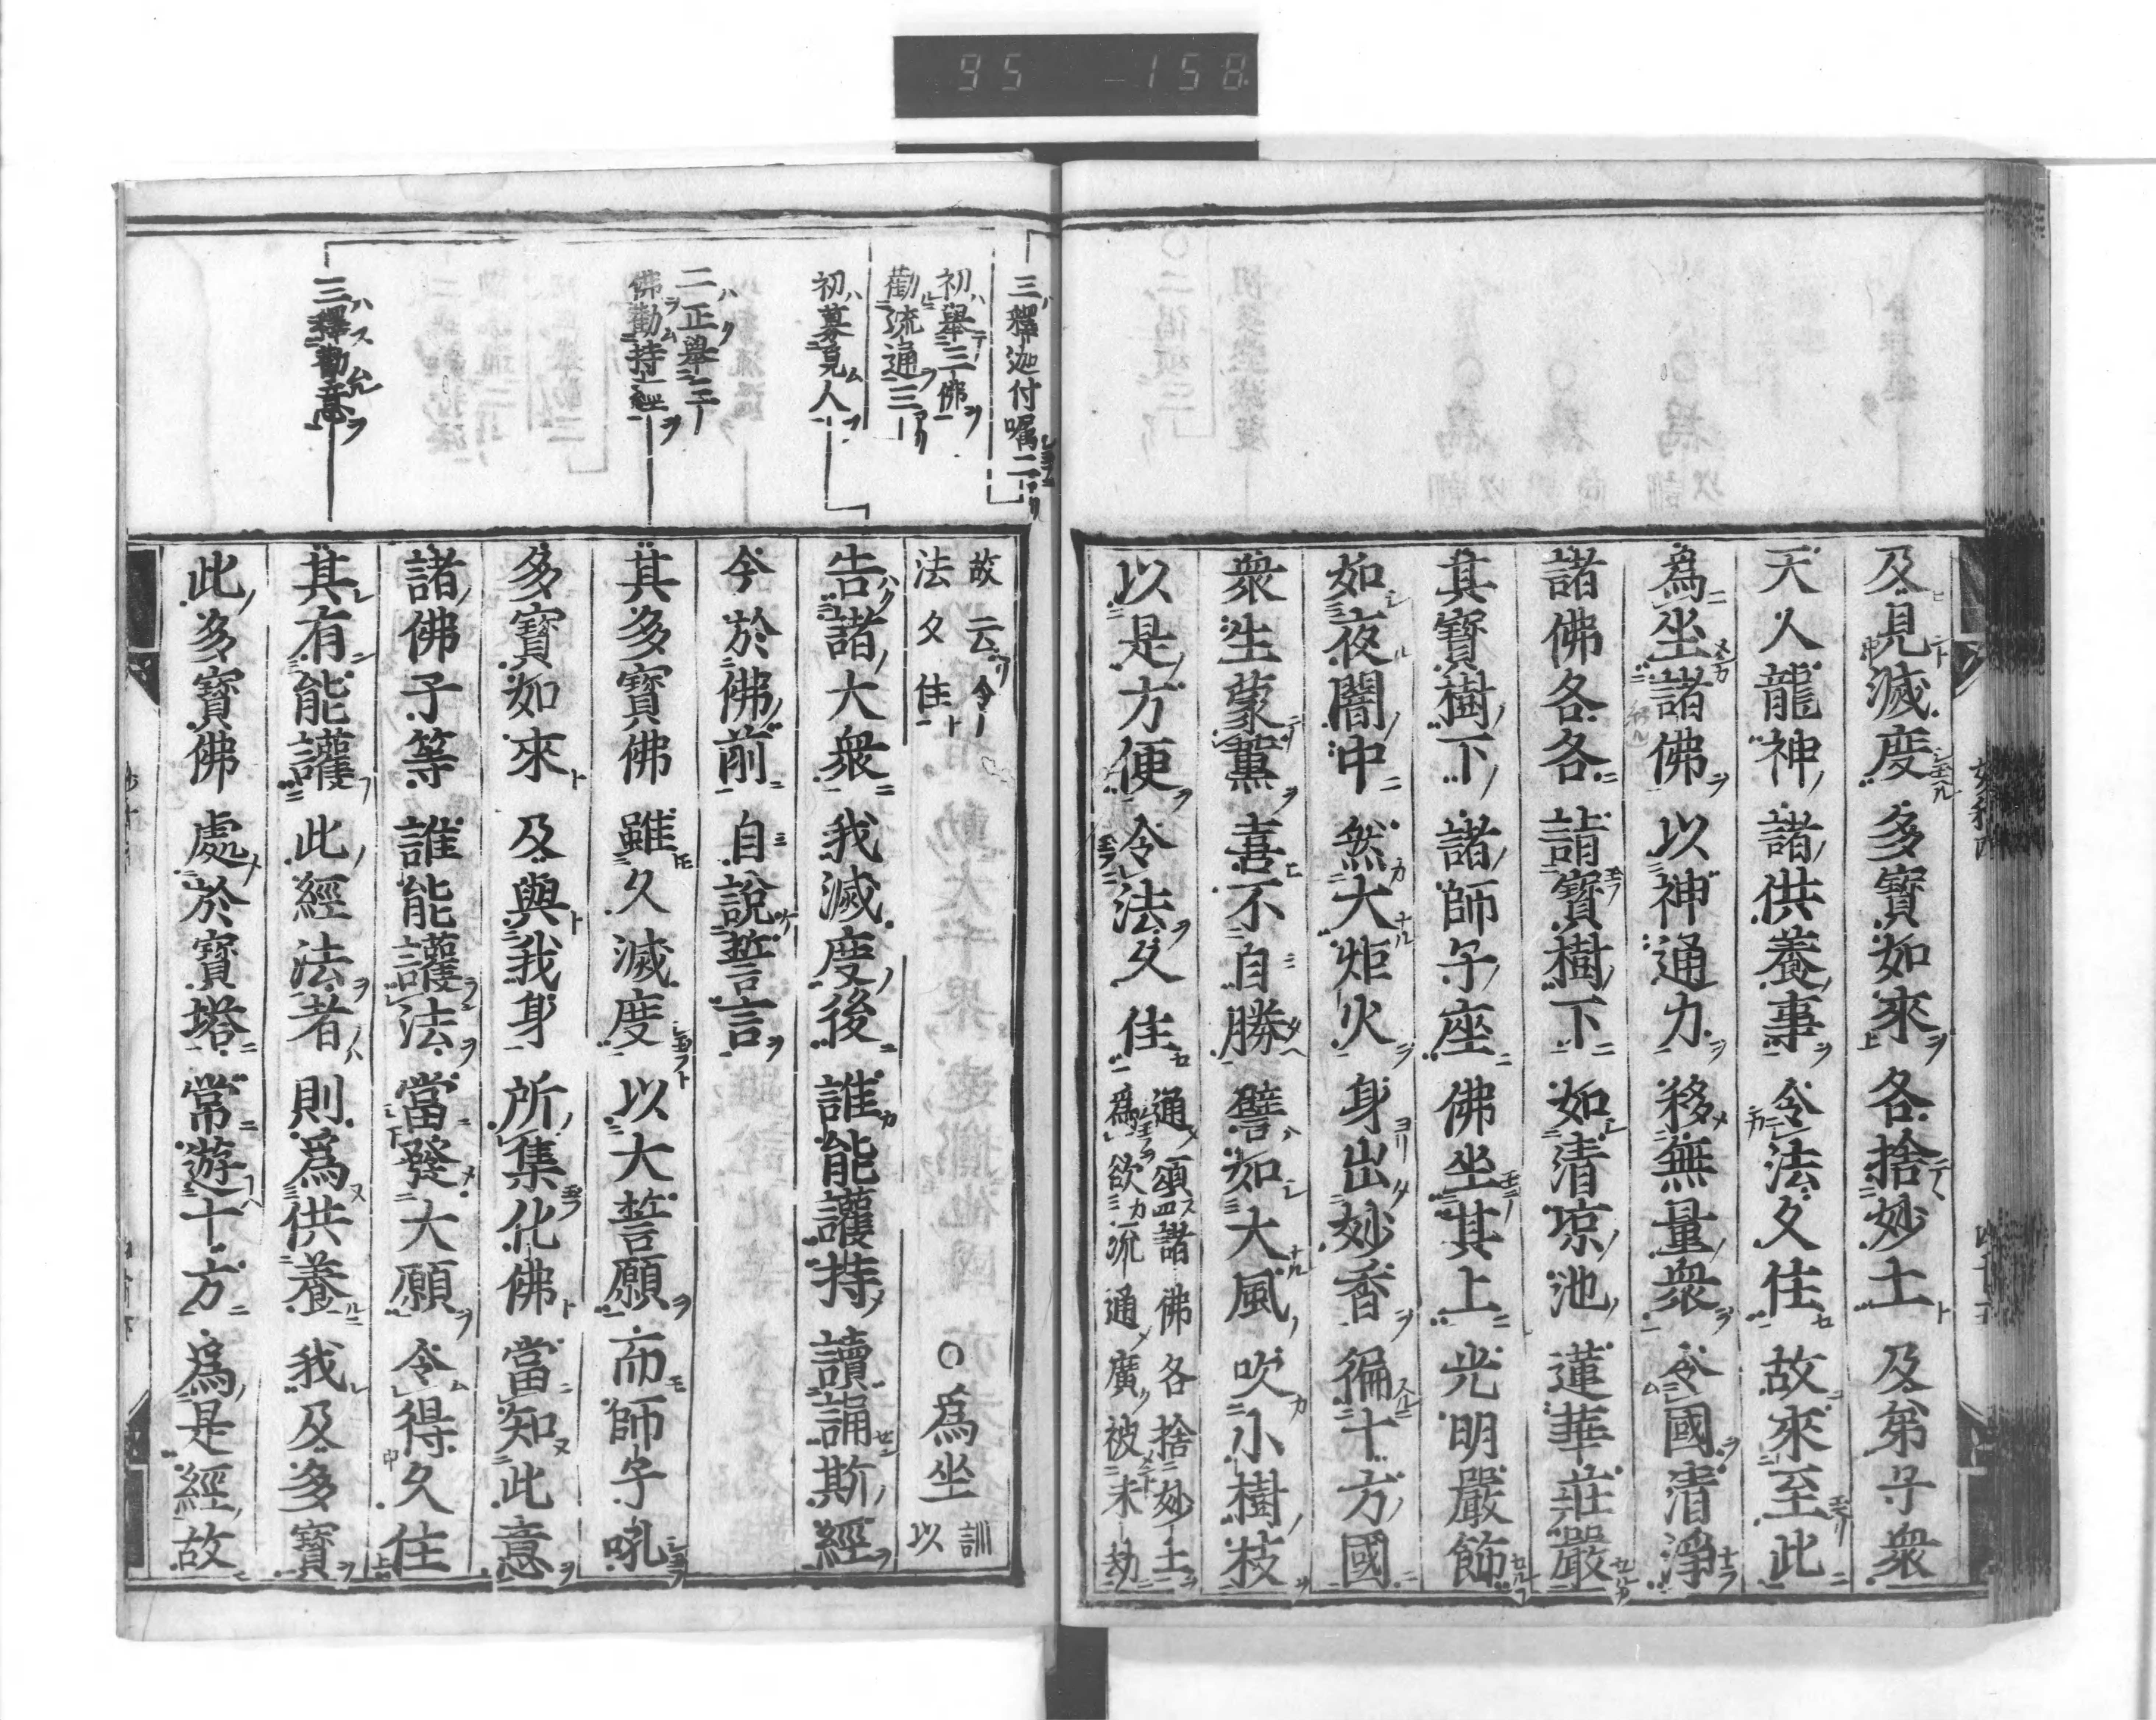 95 -158
及見滅度多寶如來各捨妙土及弟子衆
天人龍神諸供養事令法久住故來至此
爲坐諸佛以神通力移無量衆令國清淨
諸佛各各詣寶樹下如清凉池蓮華莊嚴
其寶樹下諸師子座佛坐其上光明嚴飾
如夜闇中然大炬火身出妙香徧十方國
衆生蒙薰喜不自勝譬如大風吹小樹枝
以是方便令法久住
通頌四諸佛各捨妙土
爲欲流通廣被未劫
三釋迦付囑二
初擧三佛
勸流通三
初募覓人
二正擧三
佛勸持經
三釋勸意
故云令
法久住
○爲坐
訓
以
告諸大衆我滅度後誰能護持讀誦斯經
今於佛前自說誓言
其多寶佛雖久滅度以大誓願而師子吼
多寶如來及與我身所集化佛當知此意
諸佛子等誰能護法當發大願令得久住
其有能護此經法者則爲供養我及多寶
此多寶佛處於寶塔常遊十方爲是經故